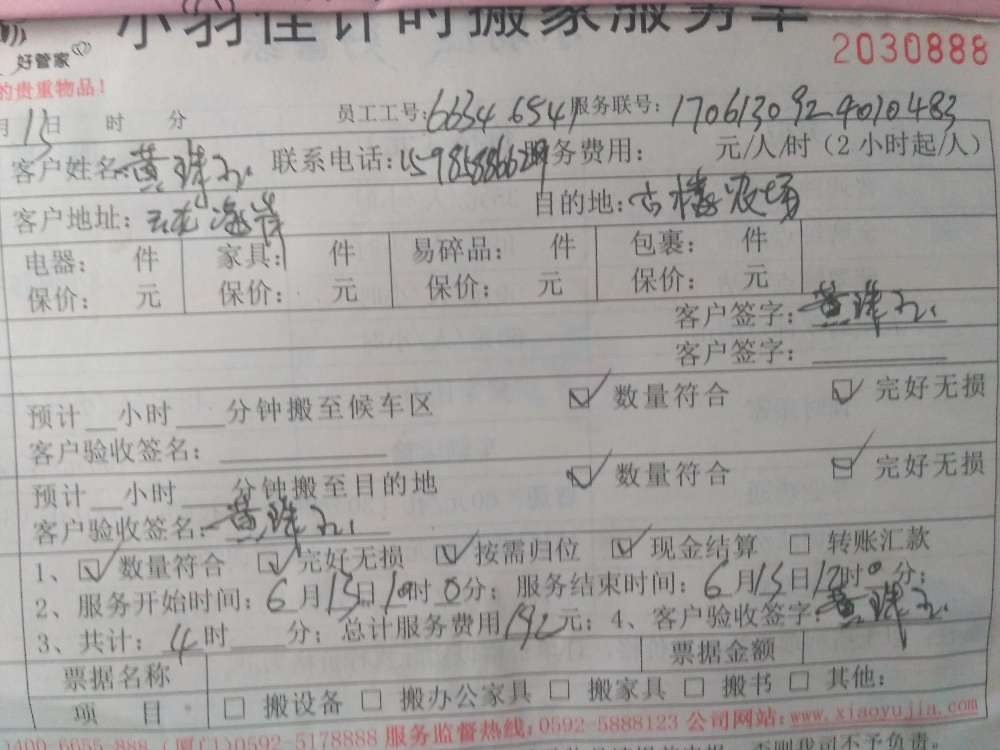 小羽佳计时搬家服务单
好管家
2030888
的贵重物品!
月13日 时 分 员工工号:6634 6541 服务联号:
客户姓名: 黄 联系电话: 务费用: 元/人/时(2小时起/人)
客户地址: 海岸 目的地: 农场
电器: 件 家具: 件 易碎品: 件 包裹: 件
保价: 元 保价: 元 保价: 元 保价: 元
客户签字: 黄
客户签字:
预计__小时___分钟搬至候车区 ☑数量符合 ☑完好无损
客户验收签名:
预计__小时___分钟搬至目的地 ☑数量符合 ☑完好无损
客户验收签名: 黄
1、☑数量符合 ☑完好无损 ☑按需归位 ☑现金结算 □转账汇款
2、服务开始时间:6月13日10时0分;服务结束时间:6月13日12时0分;
3、共计:4时___分;总计服务费用192元;4、客户验收签字: 黄
票据名称 票据金额
项 目 □搬设备 □搬办公家具 □搬家具 □搬书 □其他:
0400-6655-888 (厦门)0592-5178888 服务监督热线:0592-5888123 公司网站:www.xiaoyujia.com
否则我司不予负责。